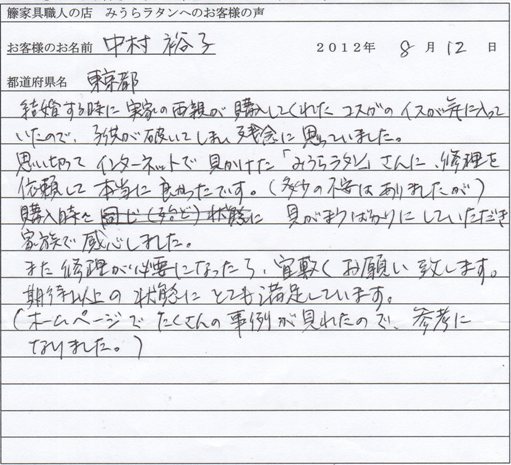 籐家具職人の店 みうらラタンへのお客様の声
お客様のお名前 中村 裕子 2012年 8月 12日
都道府県名 東京都
結婚する時に実家の両親が購入してくれたコスガのイスが気に入って
いたので、子供が破いてしまい残念に思っていました。
思い切ってインターネットで見かけた「みうらラタン」さんに、修理を
依頼して本当に良かったです。(多少の不安はありましたが)
購入時と同じ(殆ど)状態に 見がまうばかりにしていただき
家族で感心しました。
また修理が必要になったら、宜敷くお願い致します。
期待以上の状態にとても満足しています。
(ホームページでたくさんの事例が見れたので、参考に
なりました。)